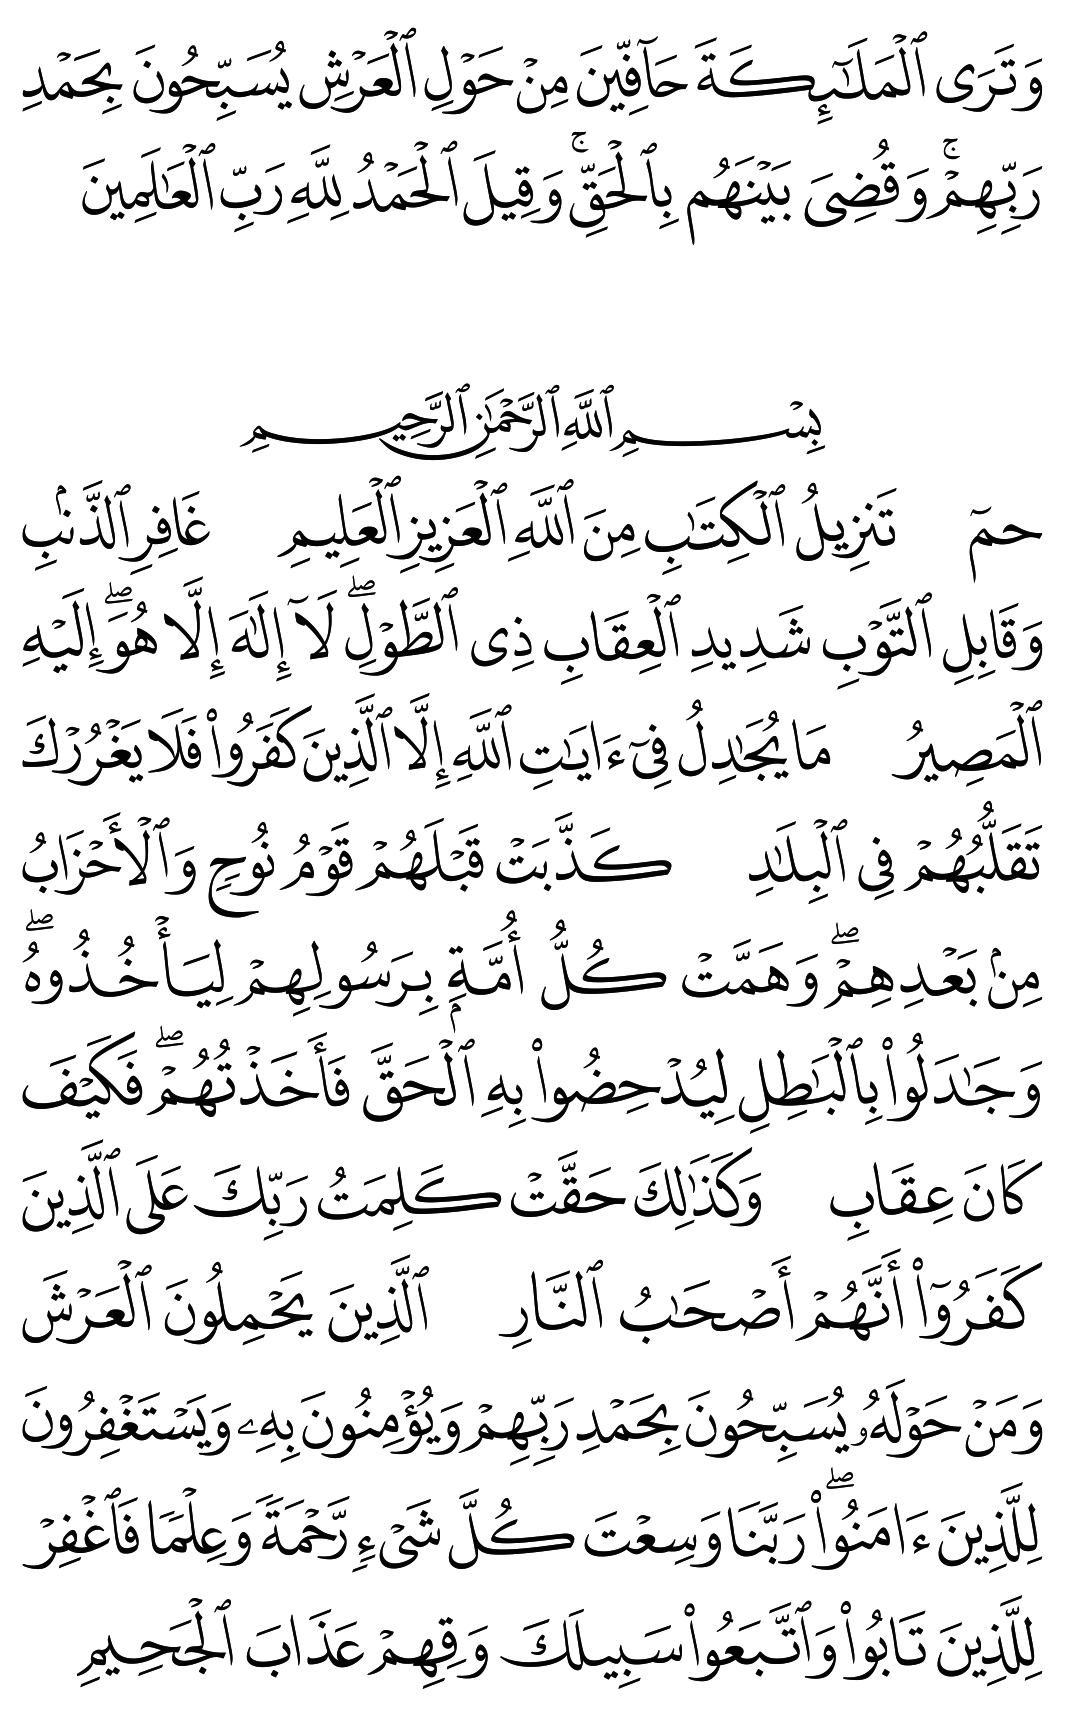 وَتَرَى ٱلْمَلَـٰٓئِكَةَ حَآفِّينَ مِنْ حَوْلِ ٱلْعَرْشِ يُسَبِّحُونَ بِحَمْدِ
رَبِّهِمْ ۚ وَقُضِىَ بَيْنَهُم بِٱلْحَقِّ ۚ وَقِيلَ ٱلْحَمْدُ لِلَّهِ رَبِّ ٱلْعَـٰلَمِينَ
بِسْمِ ٱللَّهِ ٱلرَّحْمَـٰنِ ٱلرَّحِيمِ
حمٓ تَنزِيلُ ٱلْكِتَـٰبِ مِنَ ٱللَّهِ ٱلْعَزِيزِ ٱلْعَلِيمِ غَافِرِ ٱلذَّنۢبِ
وَقَابِلِ ٱلتَّوْبِ شَدِيدِ ٱلْعِقَابِ ذِى ٱلطَّوْلِ ۖ لَآ إِلَـٰهَ إِلَّا هُوَ ۖ إِلَيْهِ
ٱلْمَصِيرُ مَا يُجَـٰدِلُ فِىٓ ءَايَـٰتِ ٱللَّهِ إِلَّا ٱلَّذِينَ كَفَرُوا۟ فَلَا يَغْرُرْكَ
تَقَلُّبُهُمْ فِى ٱلْبِلَـٰدِ كَذَّبَتْ قَبْلَهُمْ قَوْمُ نُوحٍ وَٱلْأَحْزَابُ
مِنۢ بَعْدِهِمْ ۖ وَهَمَّتْ كُلُّ أُمَّةٍۭ بِرَسُولِهِمْ لِيَأْخُذُوهُ ۖ
وَجَـٰدَلُوا۟ بِٱلْبَـٰطِلِ لِيُدْحِضُوا۟ بِهِ ٱلْحَقَّ فَأَخَذْتُهُمْ ۖ فَكَيْفَ
كَانَ عِقَابِ وَكَذَٰلِكَ حَقَّتْ كَلِمَتُ رَبِّكَ عَلَى ٱلَّذِينَ
كَفَرُوٓا۟ أَنَّهُمْ أَصْحَـٰبُ ٱلنَّارِ ٱلَّذِينَ يَحْمِلُونَ ٱلْعَرْشَ
وَمَنْ حَوْلَهُۥ يُسَبِّحُونَ بِحَمْدِ رَبِّهِمْ وَيُؤْمِنُونَ بِهِۦ وَيَسْتَغْفِرُونَ
لِلَّذِينَ ءَامَنُوا۟ ۖ رَبَّنَا وَسِعْتَ كُلَّ شَىْءٍ رَّحْمَةً وَعِلْمًا فَٱغْفِرْ
لِلَّذِينَ تَابُوا۟ وَٱتَّبَعُوا۟ سَبِيلَكَ وَقِهِمْ عَذَابَ ٱلْجَحِيمِ